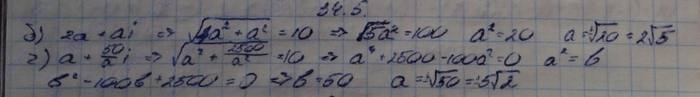 24.5.
б) 2a + ai => √(4a² + a²) = 10 => √5a² = 100 a² = 20 a = ±√20 = 2√5
г) a + 50/a i => √(a² + 2500/a²) = 10 => a⁴ + 2500 - 100a² = 0 a² = b
b² - 100b + 2500 = 0 => b = 50 a = ±√50 = ±5√2